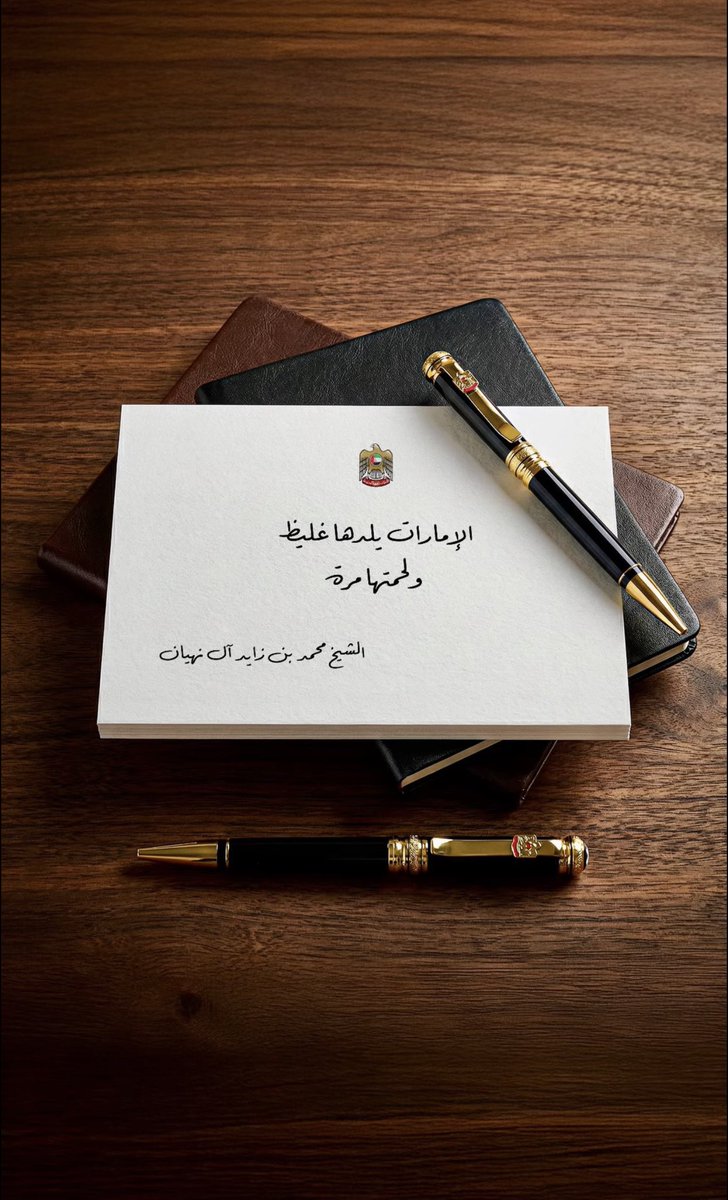 الإمارات يلدها غليظ
ولحمتها مرة
الشيخ محمد بن زايد آل نهيان